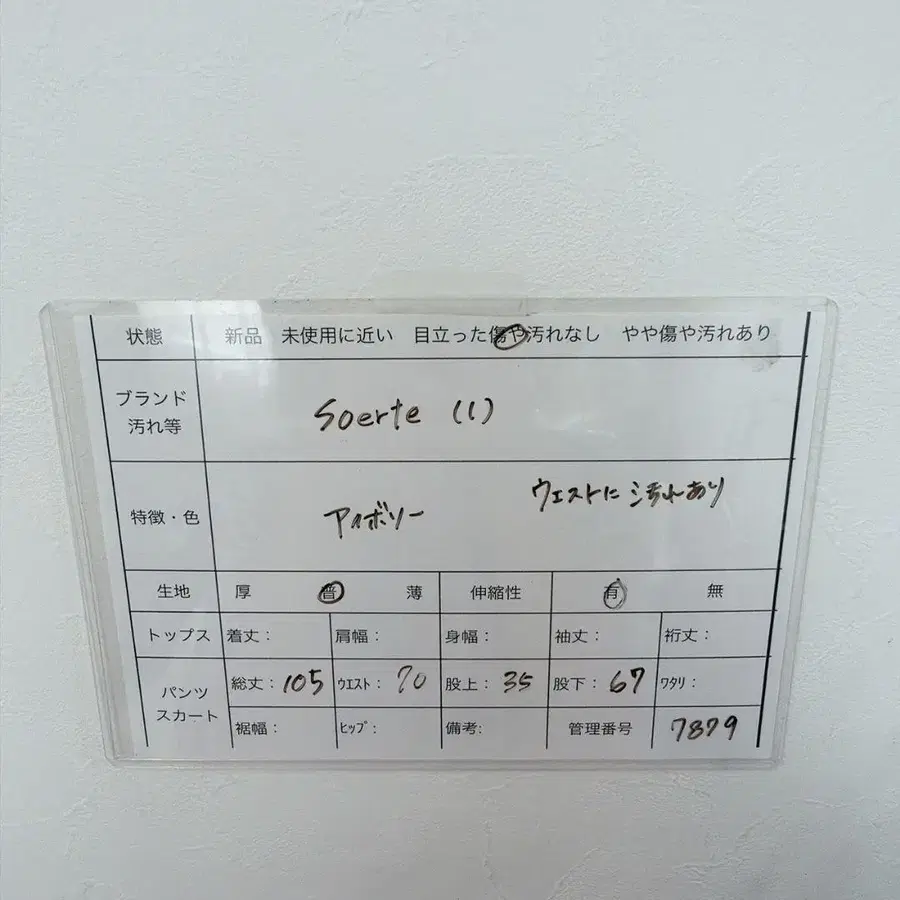 状態 新品 未使用に近い 目立った傷や汚れなし やや傷や汚れあり
ブランド
汚れ等
Soerte (1)
特徴・色
ウエストに汚れあり
アイボリー
生地 厚 普 薄 伸縮性 有 無
トップス 着丈: 肩幅: 身幅: 袖丈: 裄丈:
パンツ
スカート
総丈: 105 ウエスト: 70 股上: 35 股下: 67 ワタリ:
裾幅: ヒップ: 備考: 管理番号 7879